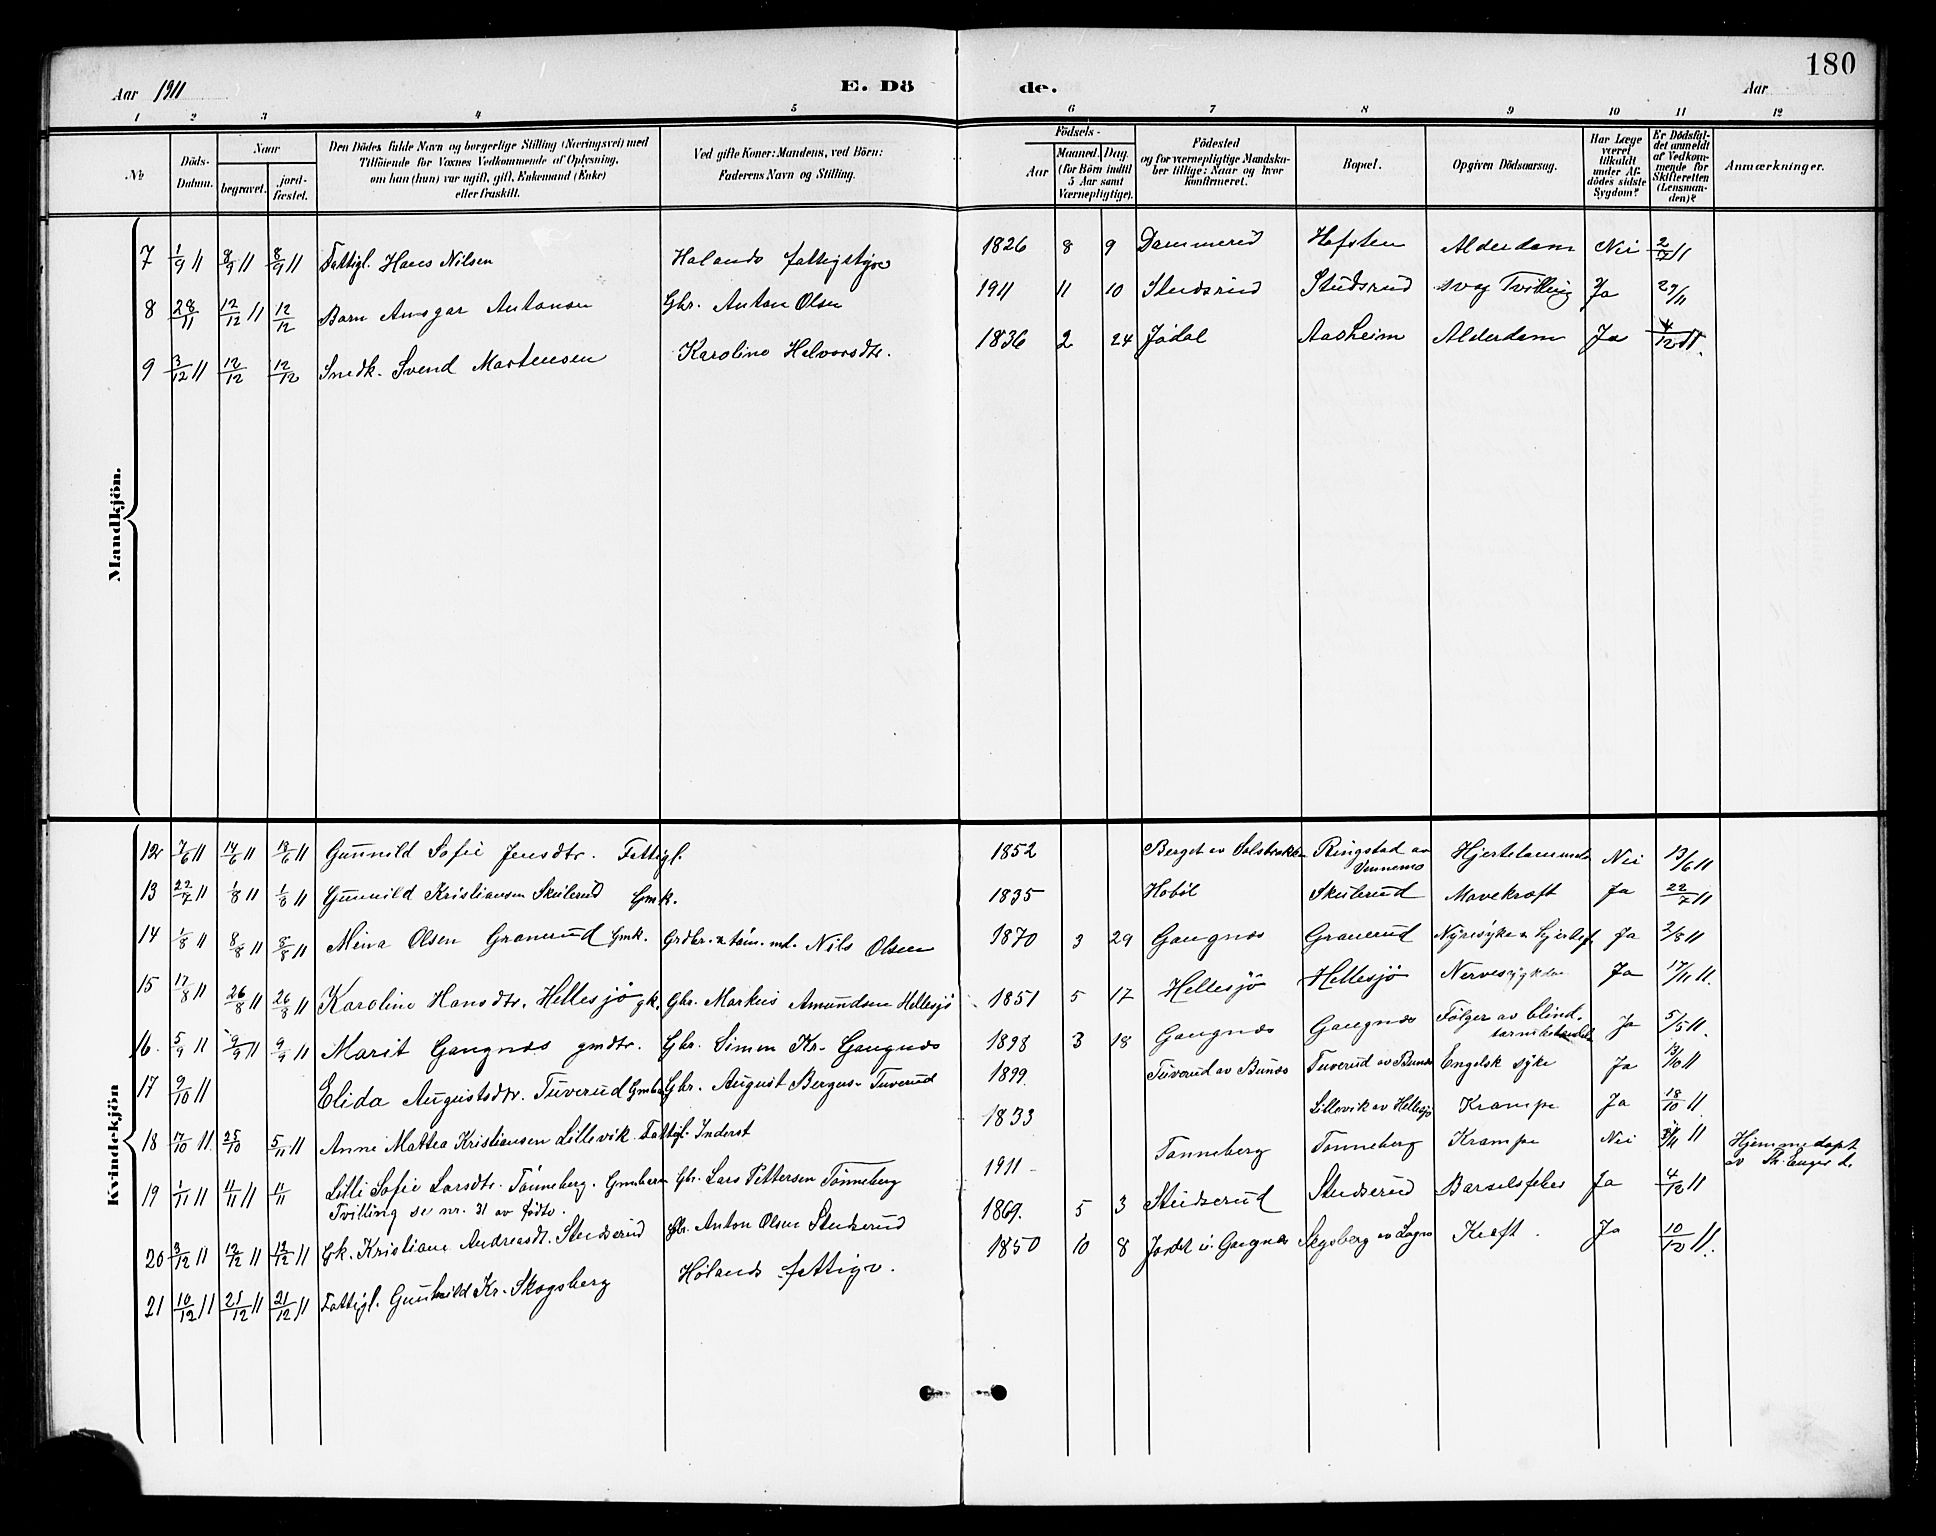 180
Aar 1911
E. Dö
de.
Aar
1 2 3 4 5 6 7 8 9 10 11 12
No
Döds-Datum.
Naar
begravet.
jord-fæstet.
Den Dödes fulde Navn og borgerlige Stilling (Næringsvei) med
Tilföiende for Voxnes Vedkommende af Oplysning,
om han (hun) var ugift, gift, Enkemand (Enke)
eller fraskilt.
Ved gifte Koner: Mandens, ved Börn:
Faderens Navn og Stilling.
Födsels-
Aar
Maaned. Dag.
(for Börn indtil
5 Aar samt
Værnepligtige).
Födested
og for værnepligtige Mandska-
ber tillige: Naar og hvor
konfirmeret.
Bopæl.
Opgiven Dödsaarsag.
Har Læge
været
tilkaldt
under Af-
dödes sidste
Sygdom?
Er Dödsfal-
det anmeldt
af Vedkom-
mende for
Skifteretten
(Lensman-
den)?
Anmærkninger.
Mandkjön.
7 1/9 11 8/9 11 8/9 11 Fattigl. Hans Nilsen Hølands fattigstyre 1826 8 9 Dammerud Hofsten Alderdom Nei 2/9 11
8 28/11 12/12 11 12/12 Barn Ansgar Antonsen Gbr. Anton Olsen 1911 11 10 Studsrud Studsrud svag Tvilling Ja 29/11
9 3/12 11 12/12 12/12 Snedk. Svend Martensen Karoline Helvorsdtr. 1836 2 24 Jödal Aasheim Alderdom Ja 4/12 11.
Kvindekjön
12 7/6 11 14/6 11 13/6 11 Gunnild Sofie Jensdtr. Fattigl. 1852 Berget av Ringstad av Vennemo Nei 13/6 11
13 22/7 11 1/8 11 1/8 11 Gunnild Kristiansen Skulerud Gmk. 1835 Hobøl Skulerud Mavekræft Ja 22/7 11
14 1/8 11 8/8 11 8/8 11 Mina Olsen Granerud Gmk. Grdbr. & töm. md. Nils Olsen 1870 3 29 Gangnæs Granerud Nyresyke & hjertef. Ja 2/8 11
15 17/8 11 26/8 11 26/8 11 Karoline Hansdtr. Hellesjö gk. Gbr. Markus Amundsen Hellesjö 1851 5 17 Hellesjö Hellesjö Ja 17/11 11.
16. 5/9 11 9/9 11 9/9 11 Marit Gangnæs gmdtr. Gbr. Simen Kr. Gangnæs 1898 3 18 Gangnæs Gangnæs Følger av blind- Ja 5/5 11.
17 9/10 11 Elida Augustsdtr. Tuverud Gmbarn Gbr. August Bergus. Tuverud 1899 Tuverud av Bunæs Tuverud av Bunæs Engelsk syke Ja 13/10 11
18 17/10 11. 25/10 5/11 11 Anne Mattea Kristiansen Lillevik Fattigl. Inderst 1833 Lillevik av Hellesjø Krampe Ja 18/10 11.
19 1/11 11 11/11 11 11/11 Lilli Sofie Larsdtr. Tönneberg. Gmbarn Gbr. Lars Pettersen Tönneberg 1911 Tonneberg Tonneberg Krampe Nei 11 Hjemmedøpt av
Tvilling se nr. 31 av fødte.
20 3/12 11 12/12 11 12/12 11 Gk. Kristiane Andreasdt. Studserud Gbr. Anton Olsen Studserud 1869. 5 3 Studserud Studserud Barselfeber Ja 4/12 11
21 10/12 11 21/12 11 21/12 11 Fattigl. Gunhild Kr. Skogsberg Hølands fattigv. 1850 10 8 Jordet u. Gangnæs Skogsberg Kræft. Ja 10/12 11.